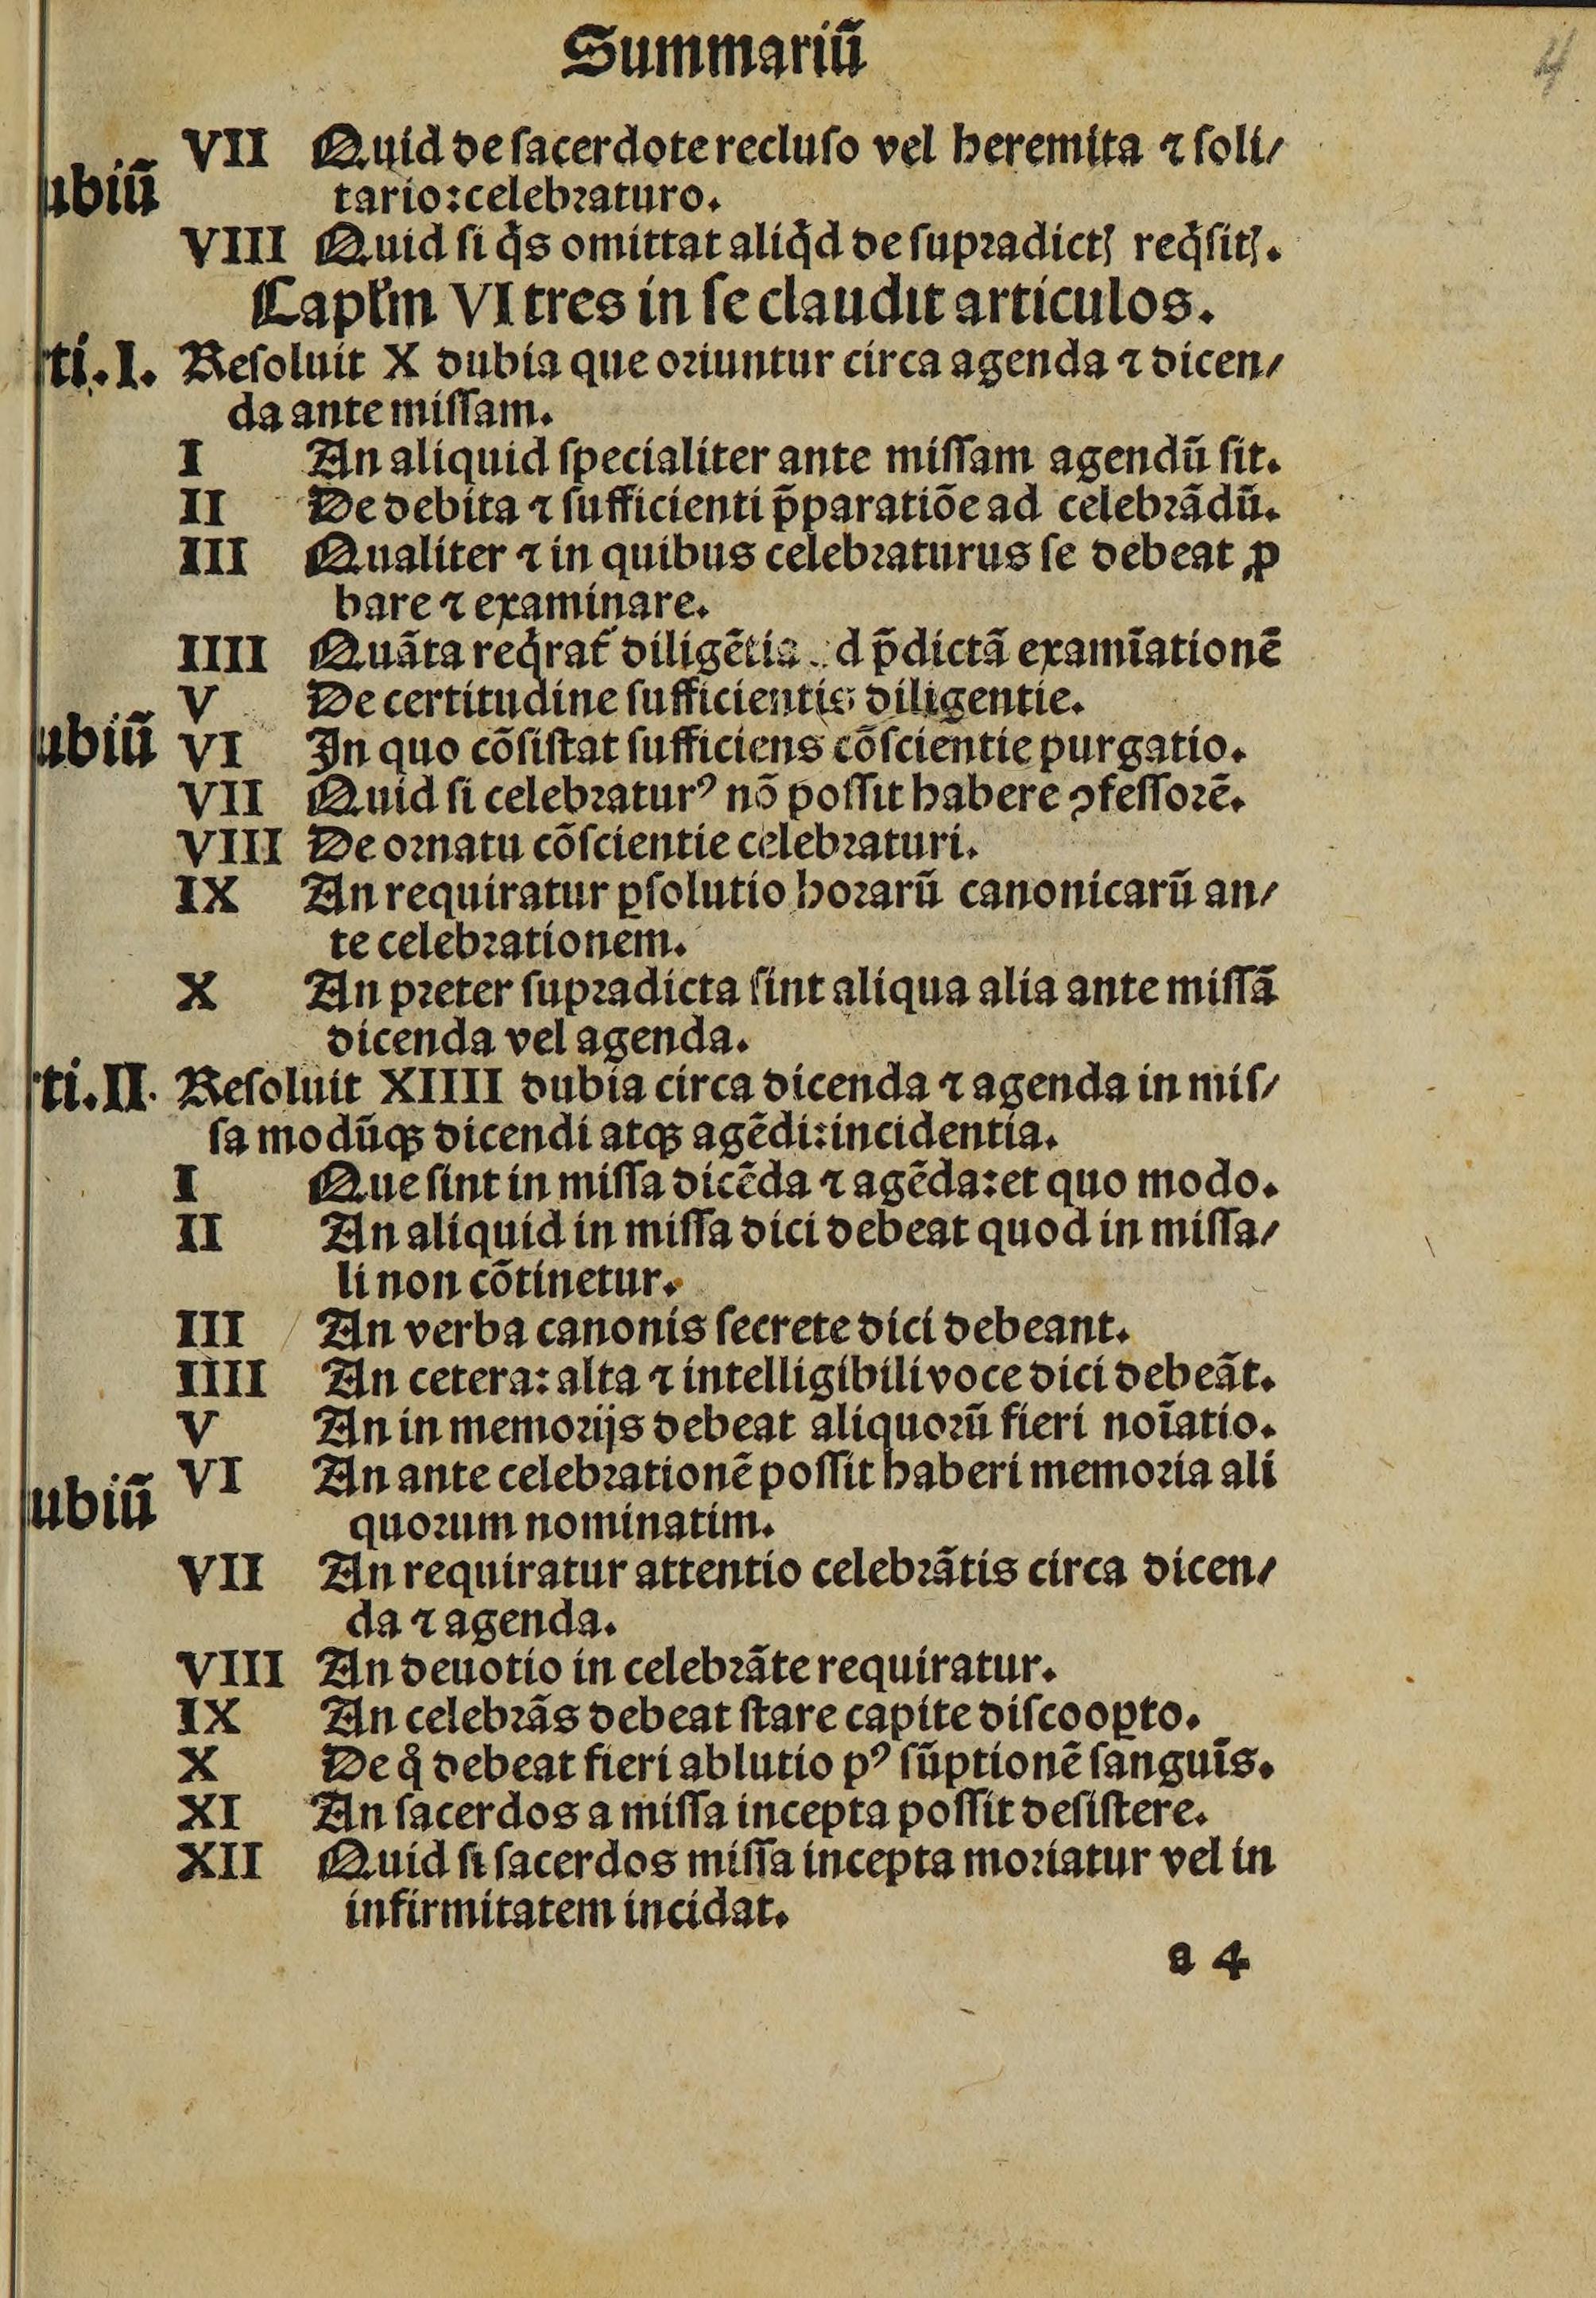 Summariũ
4
VII Quid de ſacerdote recluſo vel heremita ⁊ ſoli/
ubiũ
tario: celebꝛaturo.
VIII Quid ſi q̃s omittat aliq̃d de ſupꝛadictꝭ req̃ſitꝭ.
Capťm VI tres in ſe claudit articulos.
ti. I. Reſoluit X dubia que oꝛiuntur circa agenda ⁊ dicen/
da ante miſſam.
I An aliquid ſpecialiter ante miſſam agendũ ſit.
II De debita ⁊ ſufficienti p̃paratiõe ad celebꝛãdũ.
III Qualiter ⁊ in quibus celebꝛaturus ſe debeat ꝓ
bare ⁊ examinare.
IIII Quãta req̃rat᷑ diligẽtia d p̃dictã examĩationẽ
V De certitudine ſufficientis diligentie.
ubiũ VI In quo cõſiſtat ſufficiens cõſcientie purgatio.
VII Quid ſi celebꝛaturꝰ nõ poſſit habere ꝯfeſſoꝛẽ.
VIII De oꝛnatu cõſcientie celebꝛaturi.
IX An requiratur ꝑſolutio hoꝛarũ canonicarũ an/
te celebꝛationem.
X An pꝛeter ſupꝛadicta ſint aliqua alia ante miſſã
dicenda vel agenda.
ti. II. Reſoluit XIIII dubia circa dicenda ⁊ agenda in miſ/
ſa modũqꝫ dicendi atqꝫ agẽdi: incidentia.
I Que ſint in miſſa dicẽda ⁊ agẽda: et quo modo.
II An aliquid in miſſa dici debeat quod in miſſa/
li non cõtinetur.
III An verba canonis ſecrete dici debeant.
IIII An cetera: alta ⁊ intelligibili voce dici debeãt.
V An in memoꝛijs debeat aliquoꝛũ fieri noĩatio.
VI An ante celebꝛationẽ poſſit haberi memoꝛia ali
ubiũ
quoꝛum nominatim.
VII An requiratur attentio celebꝛãtis circa dicen/
da ⁊ agenda.
VIII An deuotio in celebꝛãte requiratur.
IX An celebꝛãs debeat ſtare capite diſcooꝑto.
X De qͦ debeat fieri ablutio pꝰ ſũptionẽ ſanguĩs.
XI An ſacerdos a miſſa incepta poſſit deſiſtere.
XII Quid ſi ſacerdos miſſa incepta moꝛiatur vel in
infirmitatem incidat.
a 4